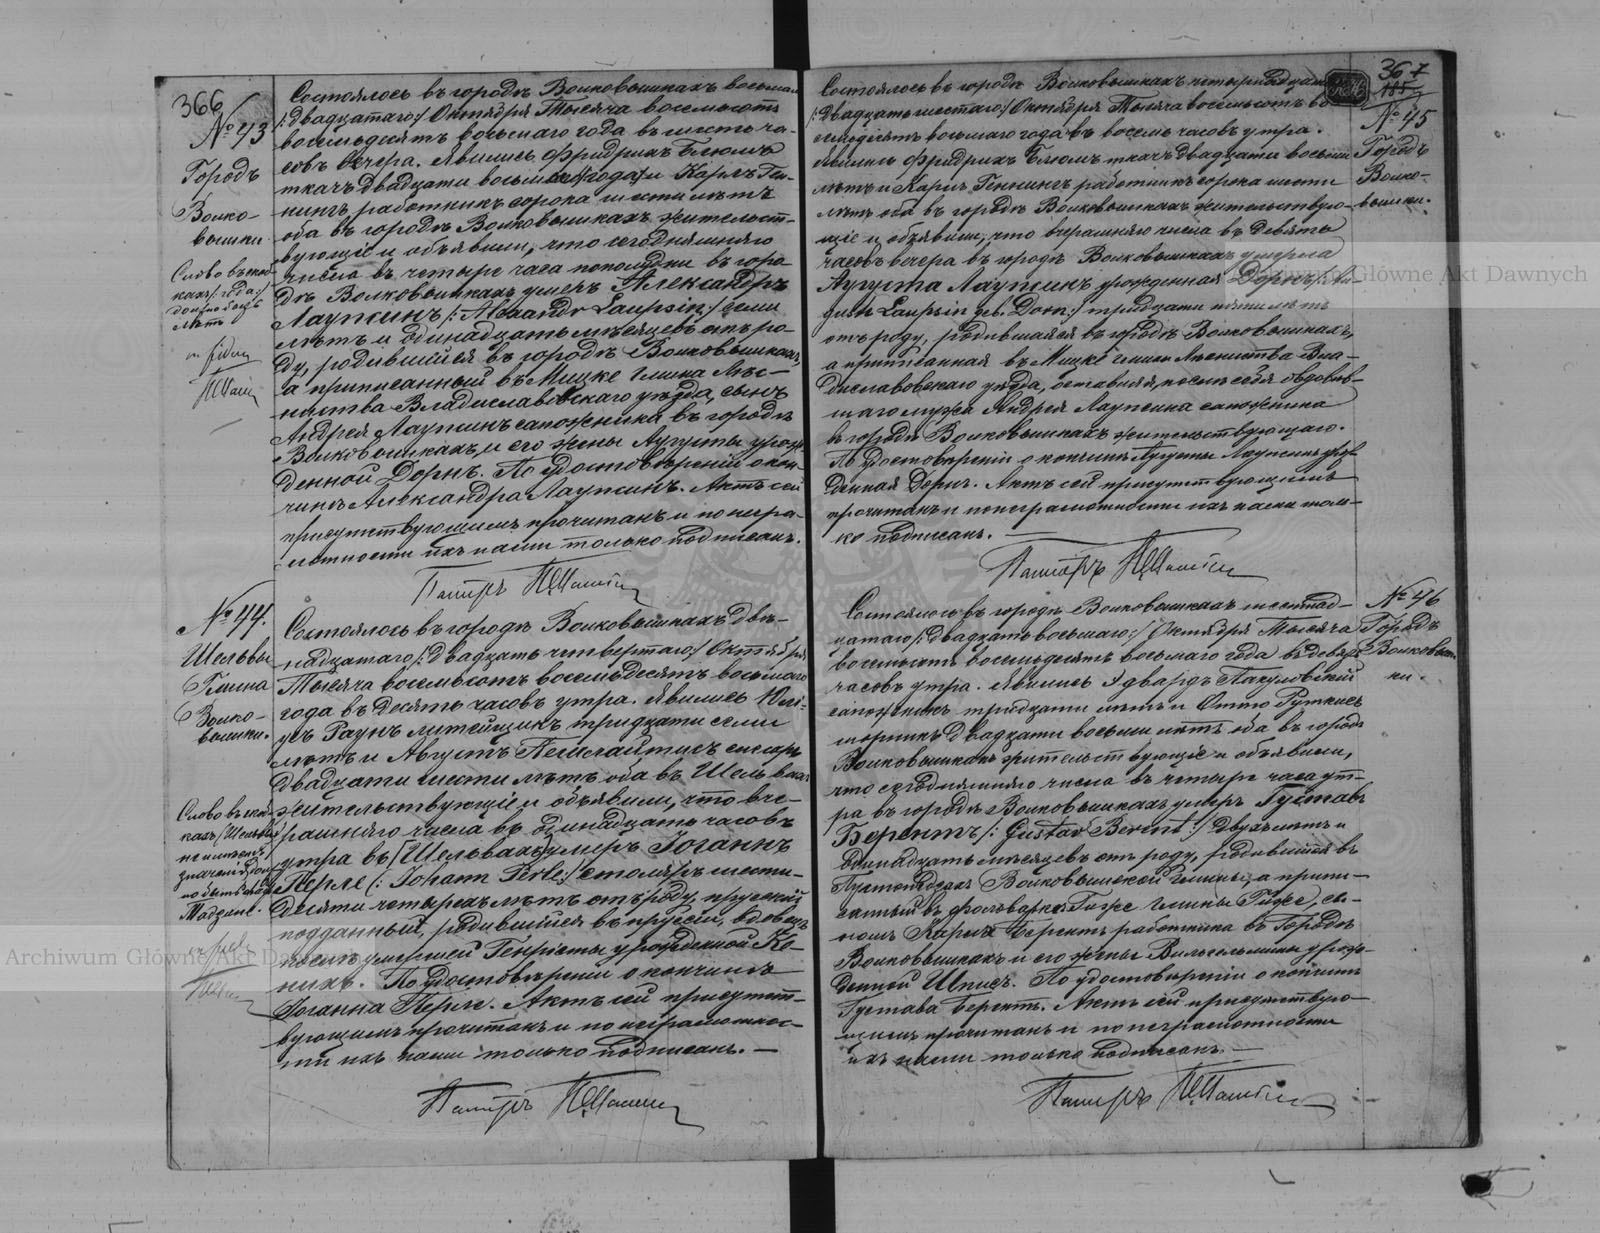 366
№ 43
Городъ
Волко-
вышки
Состоялось въ городѣ Волковышкахъ восьмаго
/:двадцатаго:/ Октября Тысяча восемьсотъ
восемьдесятъ восьмаго года въ шесть ча-
совъ вечера. Явились Фридрихъ Блюмъ
ткачъ двадцати восьми и Карлъ Ген-
нингъ работникъ сорока шести лѣтъ
оба въ городѣ Волковышкахъ жительст-
вующіе и объявили, что сегодняшняго
числа въ четыре часа пополудни въ горо-
дѣ Волковышкахъ умеръ Александръ
Лаупсинъ /: Alexandr Laupsin:/ семи
лѣтъ и одинадцать мѣсяцевъ отъ ро-
ду, родившійся въ городѣ Волковышкахъ,
а приписанный въ Мицке гмина Лѣс-
ництва Владиславовскаго уѣзда, сынъ
Андрея Лаупсинъ сапожника въ городѣ
Волковышкахъ, и его жены Аугусты урож-
денной Дорнъ. По удостовѣреніи о кон-
чинѣ Александра Лаупсинъ. Актъ сей
присутствующимъ прочитанъ и по негра-
мотности ихъ нами только подписанъ.
Пасторъ
№ 44.
Шельвы
Гмина
Волко-
вышки.
Состоялось въ городѣ Волковышкахъ двѣ-
надцатаго /:Двадцать четвертаго:/ Октября
Тысяча восемьсотъ восемьдесятъ восьмаго
года въ десять часовъ утра. Явились Юлі-
усъ Раунъ литейщикъ тридцати семи
лѣтъ и Августъ столяръ
двадцати шести лѣтъ оба въ Шельвахъ
жительствующіе и объявили, что вче-
рашняго числа въ одинадцать часовъ
утра въ /Шельвахъ/ умеръ Іоганнъ
Перле (: Johann Perle:/ столяръ шести-
десяти четырехъ лѣтъ отъ роду, прусскій
подданный, родившійся въ Пруссіи, вдовецъ
послѣ умершей Генріеты урожденной Ко-
нихъ. По удостовѣреніи о кончинѣ
Іоганна Перле. Актъ сей присутст-
вующимъ прочитанъ и по неграмотнос-
ти ихъ нами только подписанъ. —
Пасторъ
367
185
№ 45
Городъ
Волко-
вышки.
Состоялось въ городѣ Волковышкахъ четырнадцат
/:Двадцать шестаго:/ Октября Тысяча восемьсотъ во-
семьдесятъ восьмаго года въ восемь часовъ утра.
Явились Фридрихъ Блюмъ ткачъ двадцати восьми
лѣтъ и Карлъ Геннингъ работникъ сорока шести
лѣтъ оба въ городѣ Волковышкахъ жительствую-
щіе и объявили, что вчерашняго числа въ девять
часовъ вечера въ городѣ Волковышкахъ умерла
Аугуста Лаупсинъ урожденная Дорнъ /:Au-
guste Laupsin geb. Dorn:/ тридцати пяти лѣтъ
отъ роду, родившаяся въ городѣ Волковышкахъ,
а приписанная въ Мицке гмины Лѣсництва Вла-
диславовскаго уѣзда, оставивъ послѣ себя овдовѣв-
шаго мужа Андрея Лаупсина сапожника
въ городѣ Волковышкахъ жительствующаго.
По удостовѣреніи о кончинѣ Аугусты Лаупсинъ урож-
денная Дорнъ. Актъ сей присутствующимъ
прочитанъ и по неграмотности ихъ нами толь-
ко подписанъ. —
Пасторъ
№ 46
Городъ
Волковыш-
ки.
Состоялось въ городѣ Волковышкахъ шестнад-
цатаго /:Двадцать восьмаго:/ Октября Тысяча
восемьсотъ восемьдесятъ восьмаго года въ девять
часовъ утра. Явились Эдвардъ
сапожникъ тридцати лѣтъ и Отто
двадцати восьми лѣтъ оба въ городѣ
Волковышкахъ жительствующіе и объявили,
что сегодняшняго числа въ четыре часа ут-
ра въ городѣ Волковышкахъ умеръ Густавъ
Берентъ /: Gustav Berent:/ двухъ лѣтъ и
одинадцать мѣсяцевъ отъ роду, родившійся въ
Волковышской гмины, а припи-
санный въ фольварке гмины сы-
номъ Карла Берентъ работника въ Городѣ
Волковышкахъ и его жены Вильгельмины урож-
денной Шписъ. По удостовѣреніи о кончинѣ
Густава Берентъ. Актъ сей присутствую-
щимъ прочитанъ и по неграмотности
ихъ нами только подписанъ. —
Пасторъ
Archiwum Główne Akt Dawnych
Archiwum Główne Akt Dawnych